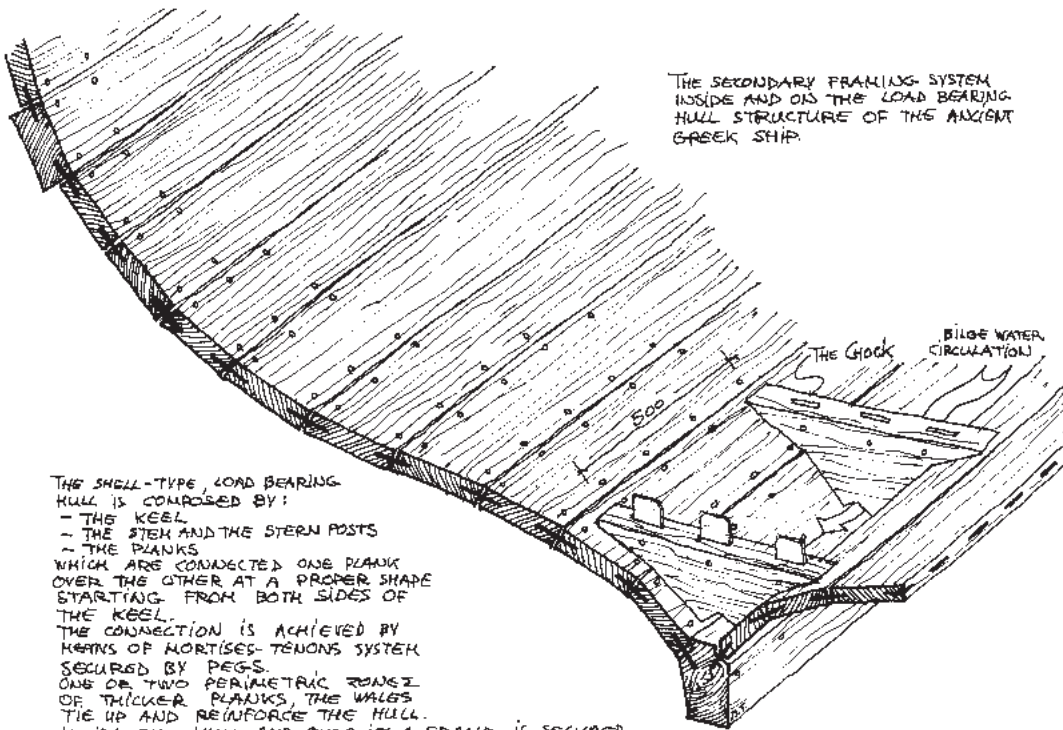 THE SECONDARY FRAMING SYSTEM
INSIDE AND ON THE LOAD BEARING
HULL STRUCTURE OF THE ANCIENT
GREEK SHIP.
THE CHOCK
BILGE WATER
CIRCULATION
500
THE SHELL-TYPE, LOAD BEARING
HULL IS COMPOSED BY:
- THE KEEL
- THE STEM AND THE STERN POSTS
- THE PLANKS
WHICH ARE CONNECTED ONE PLANK
OVER THE OTHER AT A PROPER SHAPE
STARTING FROM BOTH SIDES OF
THE KEEL.
THE CONNECTION IS ACHIEVED BY
MEANS OF MORTISES-TENONS SYSTEM
SECURED BY PEGS.
ONE OR TWO PERIMETRIC ZONES
OF THICKER PLANKS, THE WALES
TIE UP AND REINFORCE THE HULL.
IS SECURED